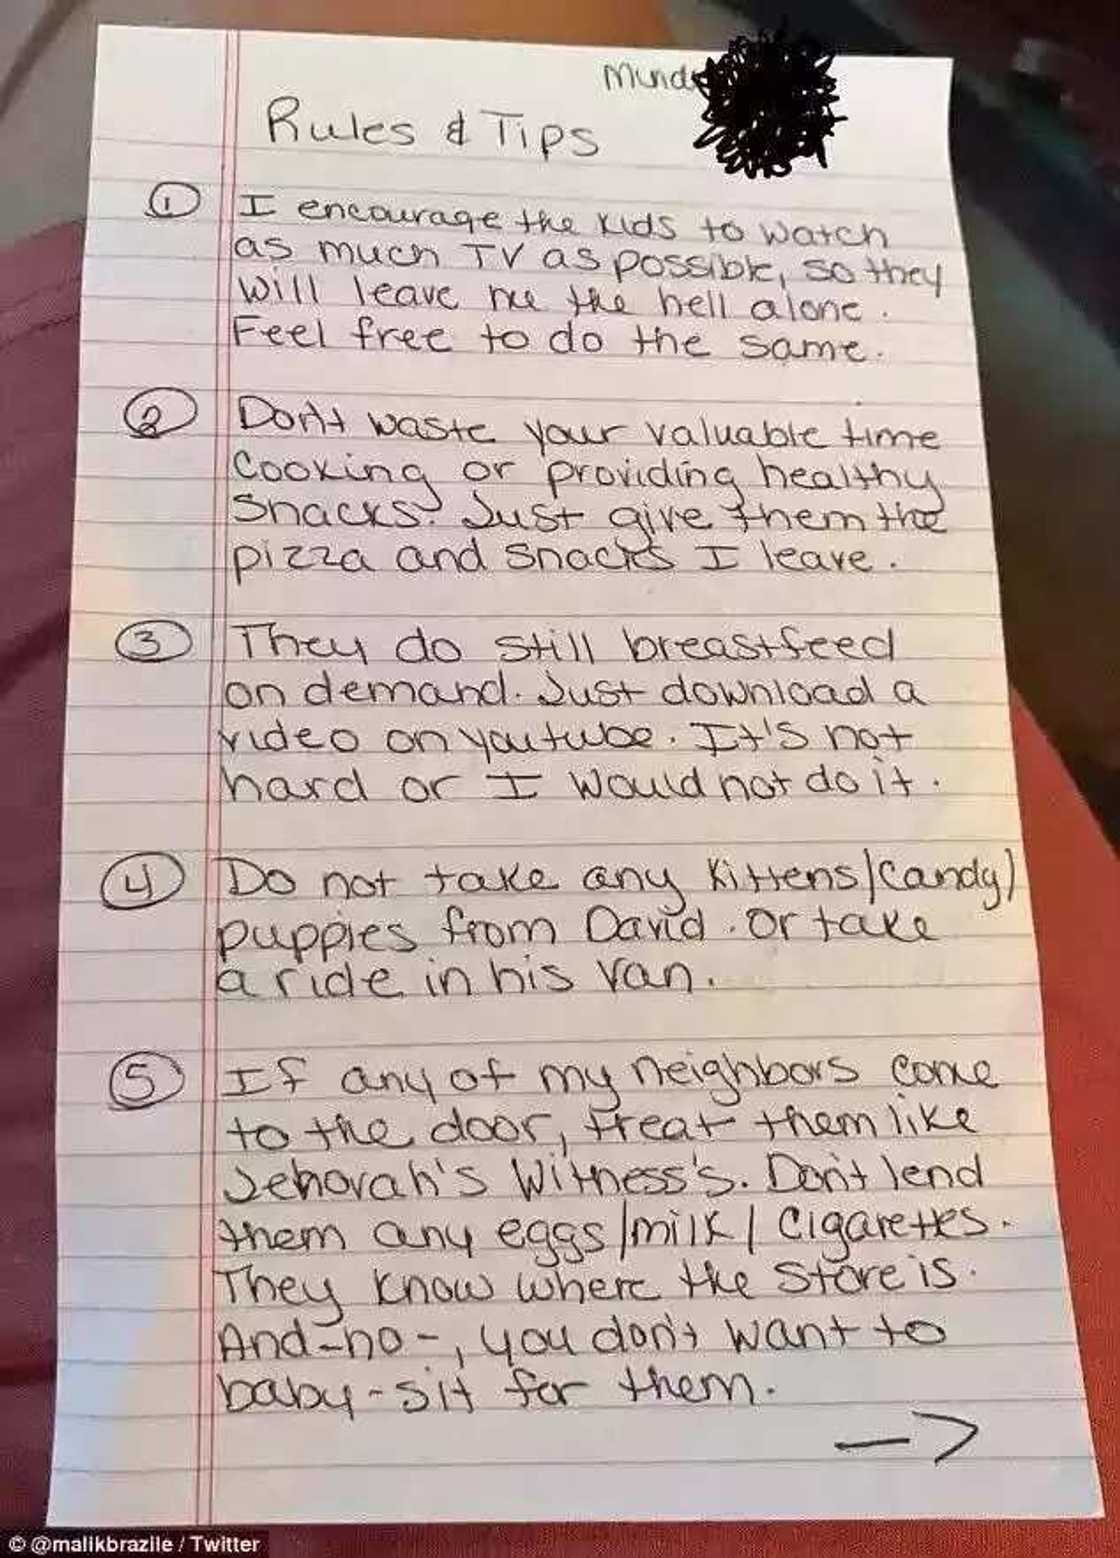 Mind
Rules & Tips
① I encourage the kids to watch
as much TV as possible, so they
will leave me the hell alone.
Feel free to do the same.
② Don't waste your valuable time
cooking or providing healthy
snacks. Just give them the
pizza and snacks I leave.
③ They do still breastfeed
on demand. Just download a
video on youtube. It's not
hard or I would not do it.
④ Do not take any kittens/candy/
puppies from David. Or take
a ride in his van.
⑤ If any of my neighbors come
to the door, treat them like
Jehovah's Witness's. Don't lend
them any eggs/milk/cigarettes.
They know where the store is.
And-no-, you don't want to
baby-sit for them.
→
© @malikbrazile / Twitter